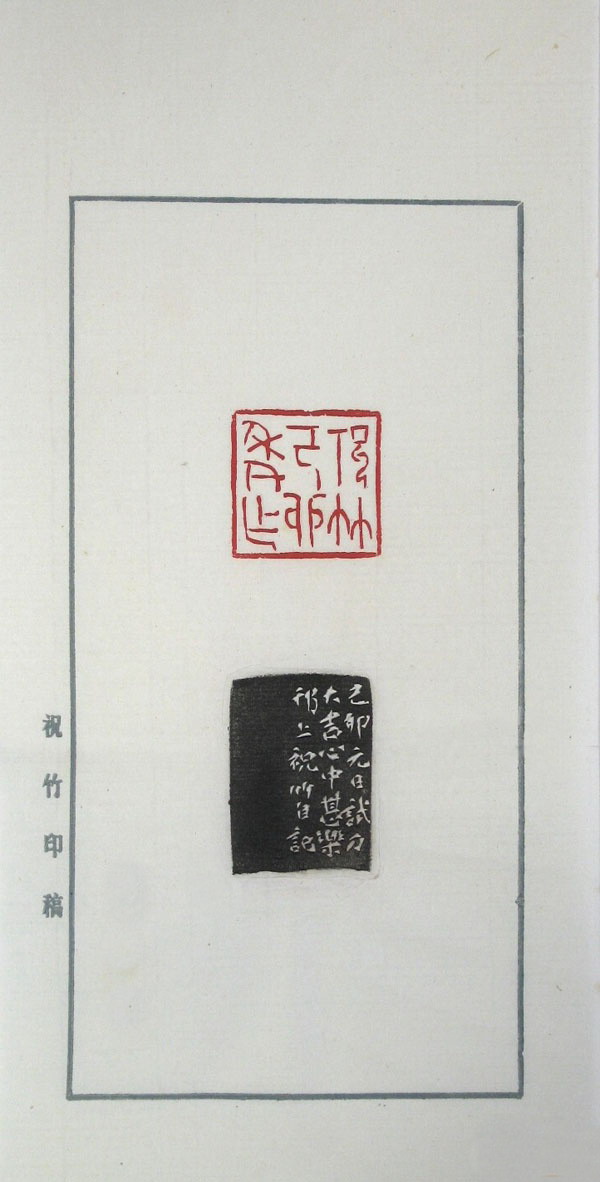 己卯
作
己卯元日試刀
大吉心中甚樂
邗上祝竹自記
祝竹印稿